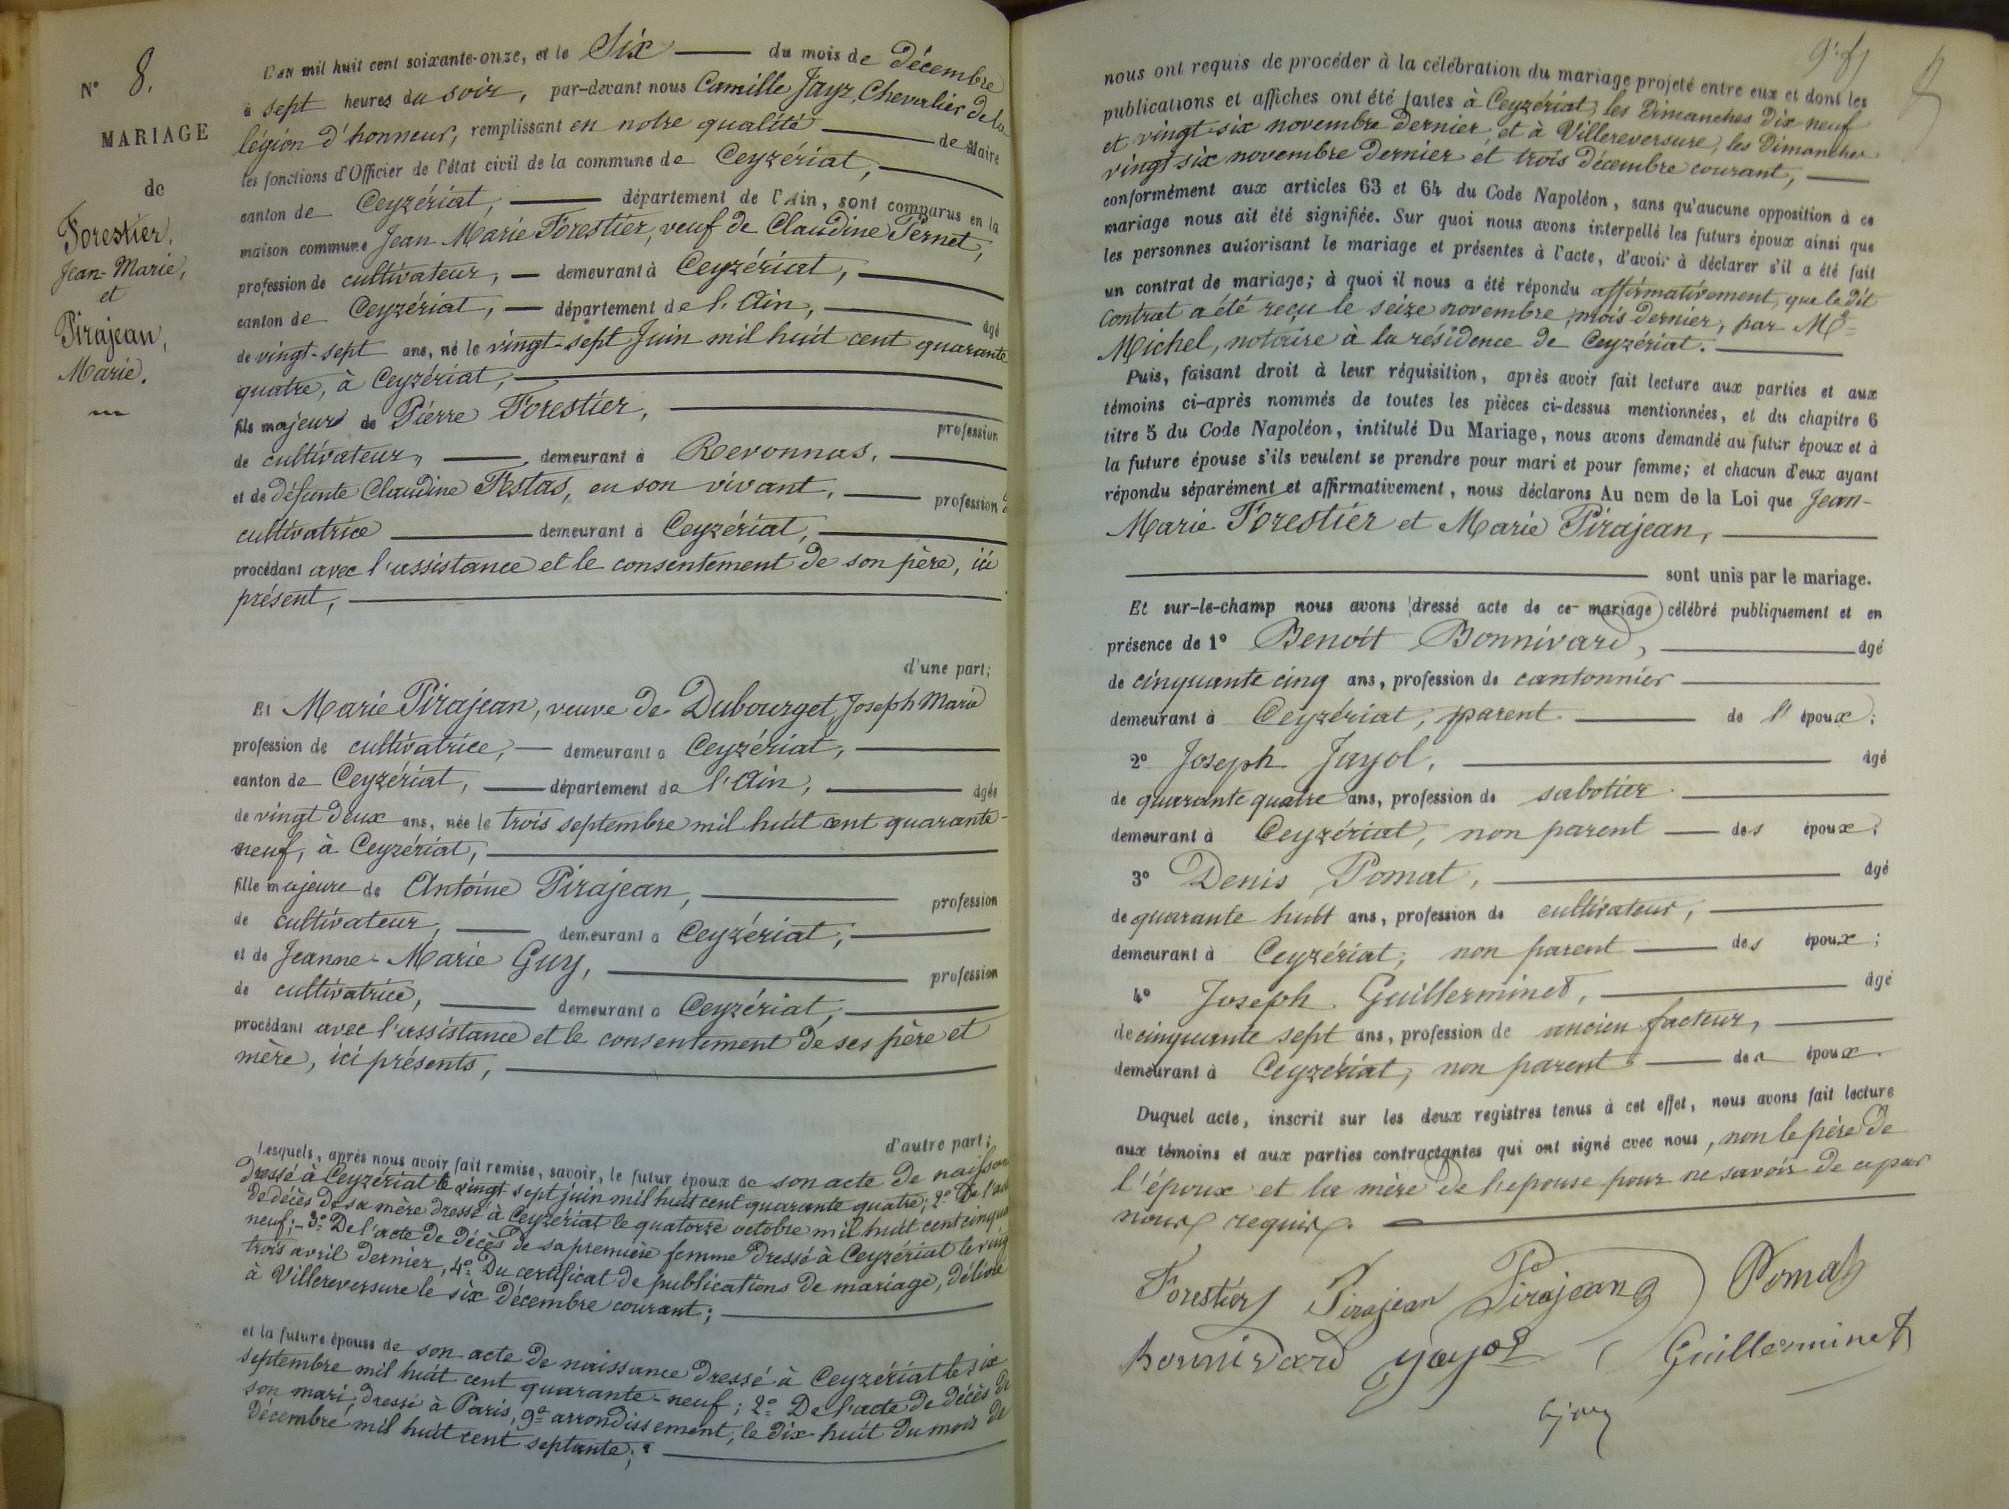 N° 8.
MARIAGE
de
Forestier,
Jean-Marie,
et
Pirajean,
Marie.
L'an mil huit cent soixante-onze, et le Six du mois de décembre
à sept heures du soir, par-devant nous Camille Jayr, Chevalier de la
légion d'honneur, remplissant en notre qualité de Maire
les fonctions d'Officier de l'état civil de la commune de Ceyzériat,
canton de Ceyzériat, département de l'Ain, sont comparus en la
maison commune Jean Marie Forestier, veuf de Claudine Pernet,
profession de cultivateur, demeurant à Ceyzériat,
canton de Ceyzériat, département de l'Ain, âgé
de vingt-sept ans, né le vingt-sept Juin mil huit cent quarante
quatre, à Ceyzériat,
fils majeur de Pierre Forestier, profession
de cultivateur, demeurant à Revonnas,
et de défunte Claudine Festas, en son vivant, profession
cultivatrice demeurant à Ceyzériat,
procédant avec l'assistance et le consentement de son père, ici
présent,
d'une part;
Et Marie Pirajean, veuve de Dubourget, Joseph Marie
profession de cultivatrice, demeurant à Ceyzériat,
canton de Ceyzériat, département de l'Ain, âgée
de vingt deux ans, née le trois septembre mil huit cent quarante-
neuf, à Ceyzériat,
fille majeure de Antoine Pirajean, profession
de cultivateur, demeurant à Ceyzériat,
et de Jeanne-Marie Guy, profession
de cultivatrice, demeurant à Ceyzériat,
procédant avec l'assistance et le consentement de ses père et
mère, ici présents,
d'autre part;
Lesquels, après nous avoir fait remise, savoir, le futur époux de son acte de naissan
dressé à Ceyzériat le vingt sept juin mil huit cent quarante quatre; 2° De l'acte
de décès de sa mère dressé à Ceyzériat le quatorze octobre mil huit cent cinqua
neuf; 3° De l'acte de décès de sa première femme dressé à Ceyzériat le ving
trois avril dernier, 4° Du certificat de publications de mariage, délivré
à Villereversure le six décembre courant;
et la future épouse de son acte de naissance dressé à Ceyzériat le six
septembre mil huit cent quarante-neuf; 2° De l'acte de décès de
son mari, dressé à Paris, 9e arrondissement, le dix-huit du mois de
décembre mil huit cent septante;
nous ont requis de procéder à la célébration du mariage projeté entre eux et dont les
publications et affiches ont été faites à Ceyzériat, les Dimanches dix neuf
et vingt-six novembre dernier, et à Villereversure, les Dimanches
vingt six novembre dernier et trois décembre courant,
conformément aux articles 63 et 64 du Code Napoléon, sans qu'aucune opposition à ce
mariage nous ait été signifiée. Sur quoi nous avons interpellé les futurs époux ainsi que
les personnes autorisant le mariage et présentes à l'acte, d'avoir à déclarer s'il a été fait
un contrat de mariage; à quoi il nous a été répondu affirmativement, que le dit
Contrat a été reçu le seize novembre, mois dernier, par Me
Michel, notaire à la résidence de Ceyzériat.
Puis, faisant droit à leur réquisition, après avoir fait lecture aux parties et aux
témoins ci-après nommés de toutes les pièces ci-dessus mentionnées, et du chapitre 6
titre 5 du Code Napoléon, intitulé Du Mariage, nous avons demandé au futur époux et à
la future épouse s'ils veulent se prendre pour mari et pour femme; et chacun d'eux ayant
répondu séparément et affirmativement, nous déclarons Au nom de la Loi que Jean-
Marie Forestier et Marie Pirajean,
sont unis par le mariage.
Et sur-le-champ nous avons dressé acte de ce mariage célébré publiquement et en
présence de 1° Benoit Bonnivard, âgé
de cinquante cinq ans, profession de cantonnier
demeurant à Ceyzériat, parent de l' époux;
2° Joseph Jayol, âgé
de quarante quatre ans, profession de sabotier
demeurant à Ceyzériat, non parent des époux;
3° Denis Pomat, âgé
de quarante huit ans, profession de cultivateur,
demeurant à Ceyzériat, non parent des époux;
4° Joseph Guillerminet, âgé
de cinquante sept ans, profession de ancien facteur,
demeurant à Ceyzériat, non parent des époux.
Duquel acte, inscrit sur les deux registres tenus à cet effet, nous avons fait lecture
aux témoins et aux parties contractantes qui ont signé avec nous, non le père de
l'époux et la mère de l'épouse pour ne savoir de ce par
nous requis.
Forestier Pirajean Pirajean Pomat
Bonnivard Jayol Guillerminet